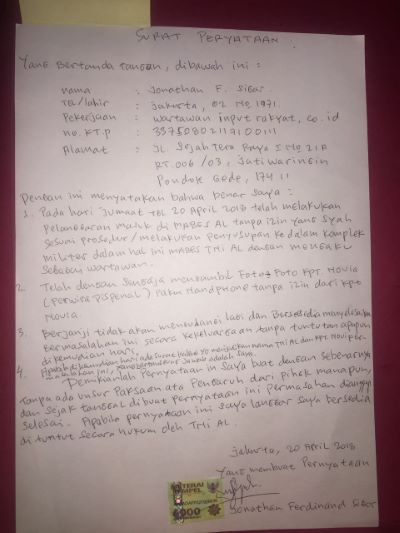 SURAT PERYATAAN :
Yang Bertanda tangan, dibawah ini :
nama : Jonathan F. Sigar
Tgl/lahir : Jakarta, 02 Mei 1971
Pekerjaan : wartawan input rakyat, co.id
no. KTP :
Alamat : JL. Sejahtera Raya
RT.006 /03, Jatiwaringin
Pondok Gede, 17411
Dengan ini menyatakan bahwa benar saya :
1. Pada hari Jumaat TGL 20 April 2018 telah melakukan
Pelanggaran masuk di MABES AL tanpa izin yang syah
sesuai prosedur/melakukan penyusupan ke dalam Komplek
militer dalam hal ini MABES TNI AL dengan mengaku
sebagai wartawan.
2. Telah dengan sengaja mengambil Foto2 Poto KPT Novia
(Perwira Dispenal) Pakai Handphone tanpa izin dari KPT
Novia.
3. Berjanji tidak akan mengulangi lagi dan Bersedia menyelesaikan
Permasalahan ini secara Kekeluargaan tanpa tuntutan apapun
dikemudian hari.
4. Apabila dikemudian hari ada nama TNI AL dan KPT Novia
adalah saya.
Demikianlah Pernyataan ini saya buat dengan sebenarnya
Tanpa ada unsur Paksaan ata Pengaruh dari pihak manapun,
dan sejak tanggal di buat pernyataan ini permasahan dianggap
selesai. Apabila pernyataan ini saya langgar saya bersedia
di tuntut secara hukum oleh TNI AL.
Jakarta, 20 April 2018
Yang membuat Pernyataan
METERAI
TEMPEL
6000
Jonathan Ferdinand Sigar